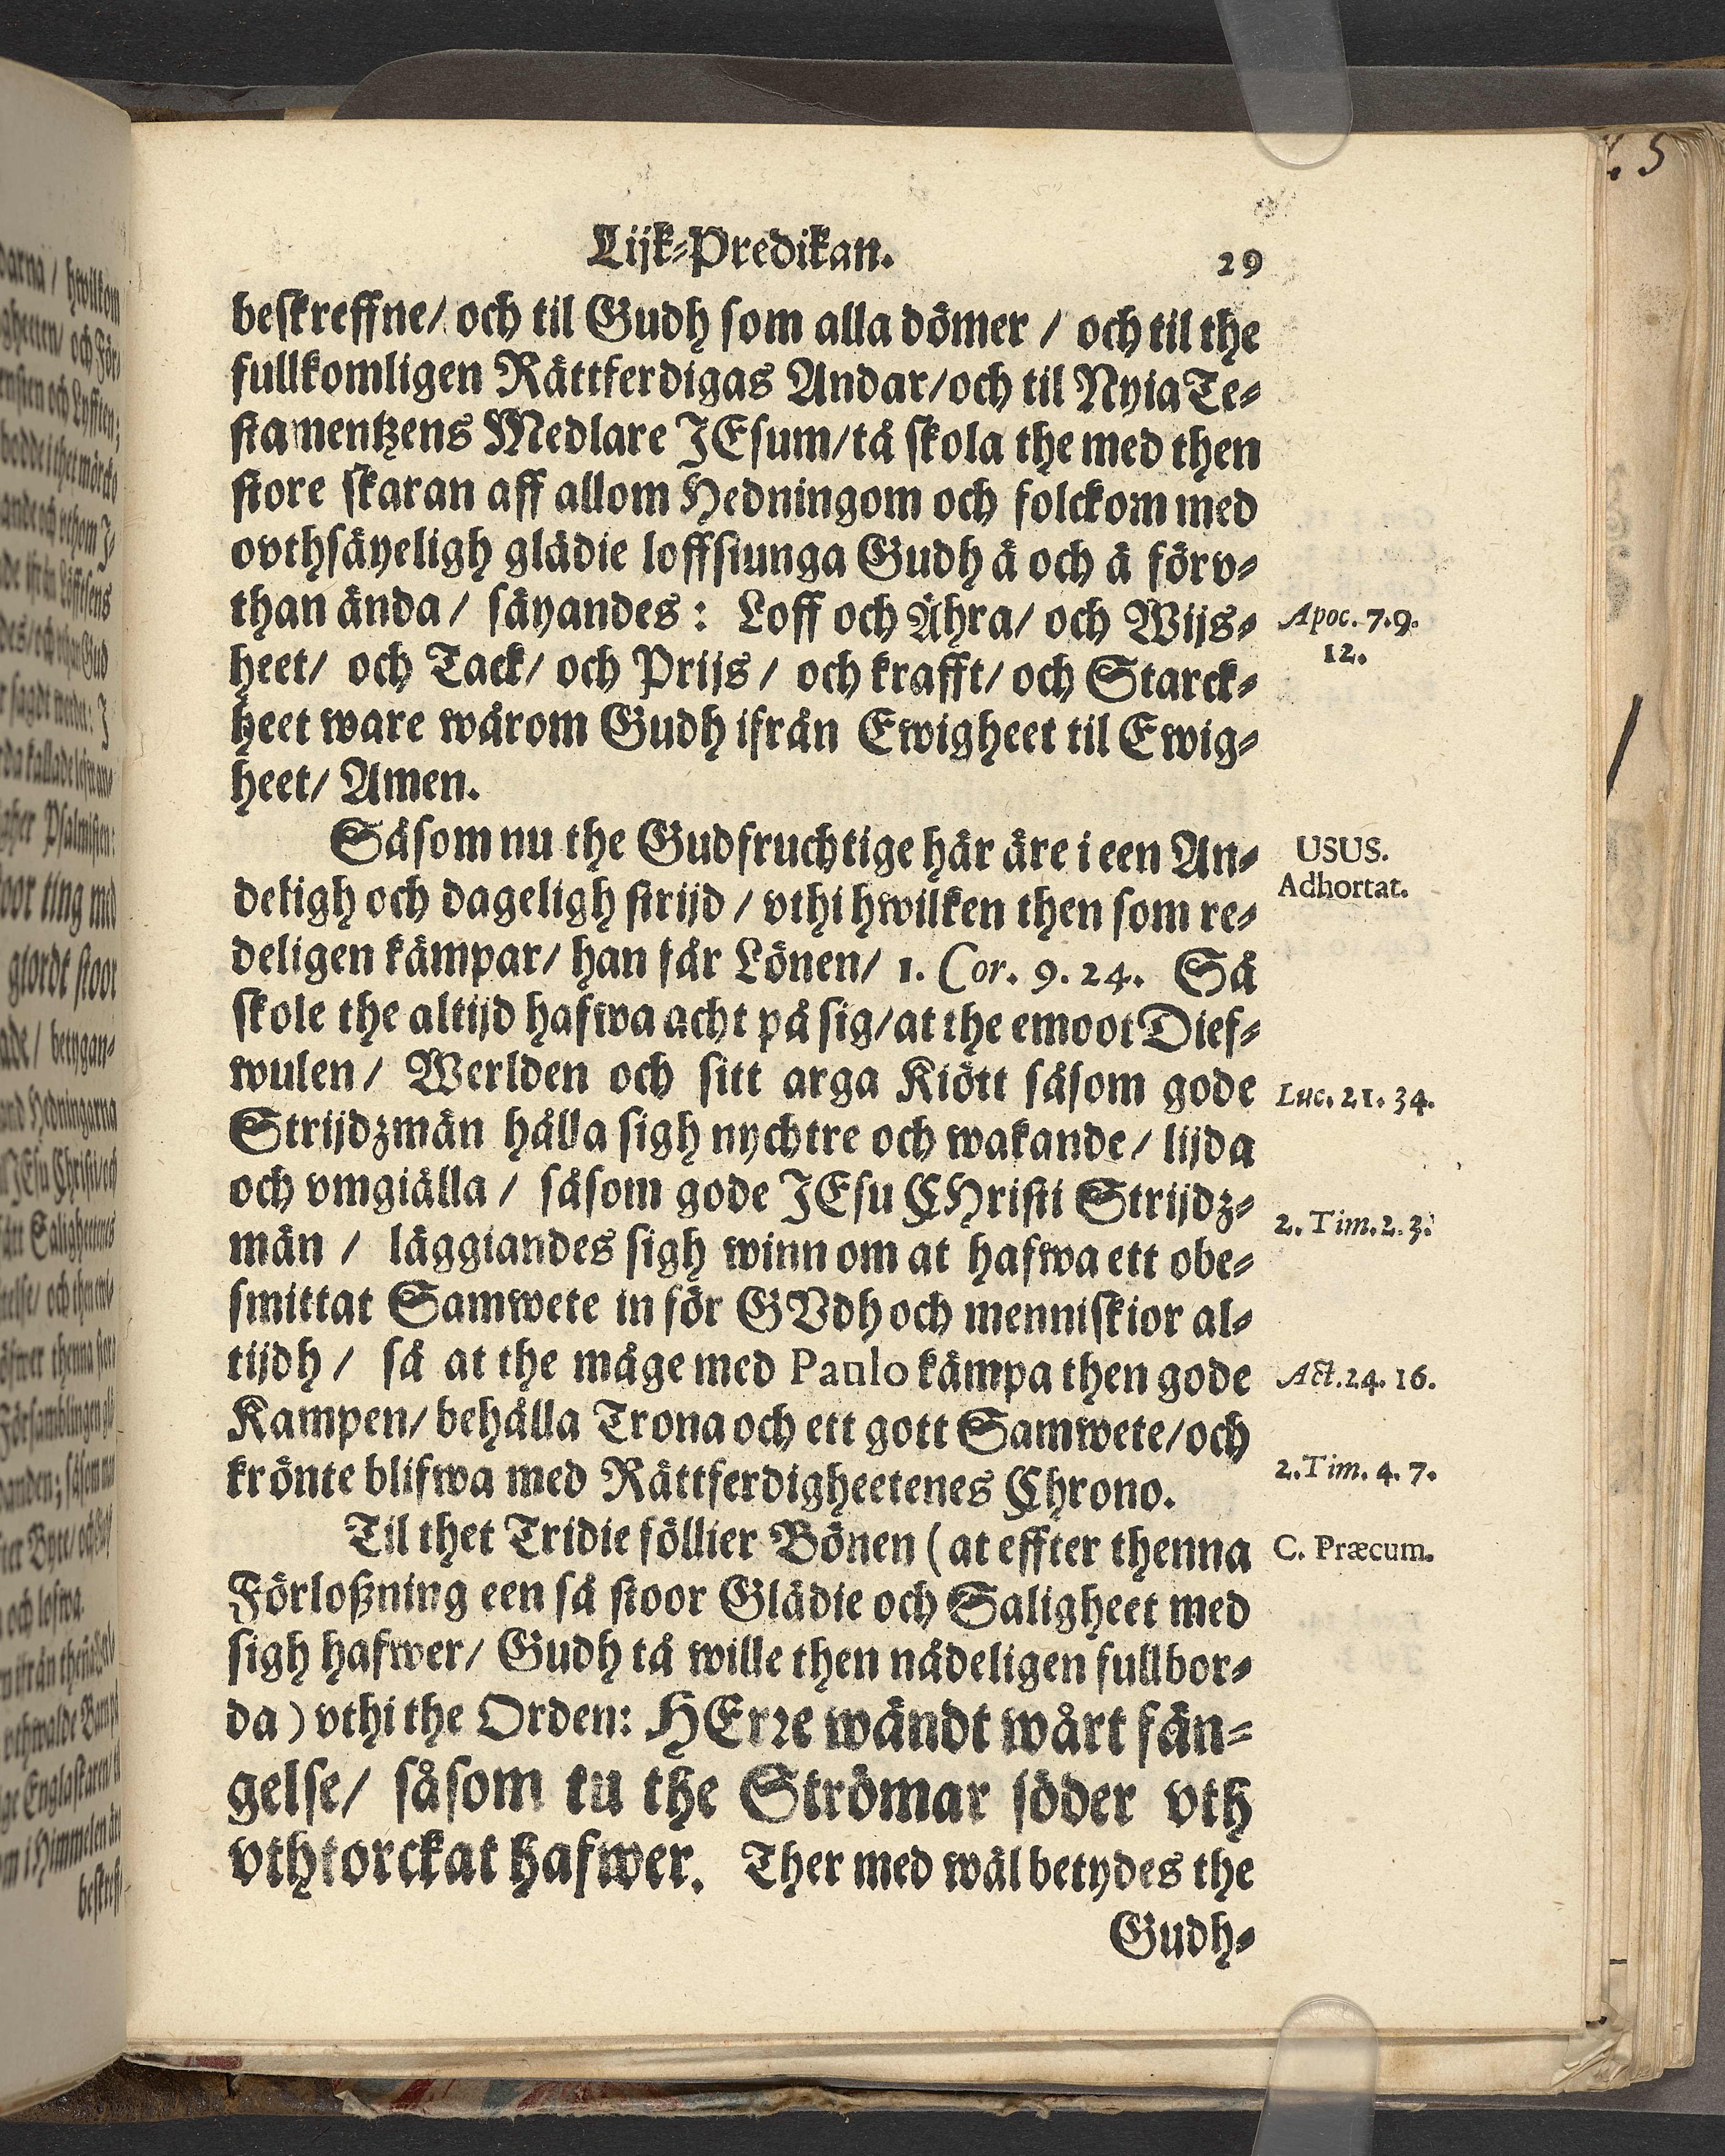 Lijk-Predikan. 29
beskreffne/ och til Gudh som alla dömer / och til the
fullkomligen Rättferdigas Andar/och til Nyia Te-
stamentzens Medlare JEsum/tå skola the med then
store skaran aff allom Hedningom och folckom med
ovthsäyeligh glädie loffsiunga Gudh å och å förv-
than ända / säyandes : Loff och Ähra/ och Wijs-
Apoc. 7.9.
12.
heet/ och Tack/ och Prijs / och krafft/ och Starck-
heet ware wårom Gudh ifrån Ewigheet til Ewig-
heet/ Amen.
Såsom nu the Gudfruchtige här äre i een An-
USUS.
Adhortat.
deligh och dageligh strijd / vthi hwilken then som re-
deligen kämpar/ han får Lönen/ 1. Cor. 9. 24. Så
skole the altijd hafwa acht på sig/at the emoot Dief-
wulen / Werlden och sitt arga Kiött såsom gode
Luc. 21. 34.
Strijdzmän hålla sigh nychtre och wakande/ lijda
och vmgiälla / såsom gode JEsu CHristi Strijdz-
2. Tim. 2. 3.
män / läggiandes sigh winn om at hafwa ett obe-
smittat Samwete in för GVdh och menniskior al-
tijdh / så at the måge med Paulo kämpa then gode
Act. 24. 16.
Kampen/ behålla Trona och ett gott Samwete/och
krönte blifwa med Rättferdigheetenes Chrono.
2. Tim. 4. 7.
Til thet Tridie föllier Bönen (at effter thenna
C. Præcum.
Förloßning een så stoor Glädie och Saligheet med
sigh hafwer/ Gudh tå wille then nådeligen fullbor-
da) vthi the Orden: HErre wändt wårt fän-
gelse/ såsom tu the Strömar söder vth
vthtorckat hafwer. Ther med wäl betydes the
Gudh-